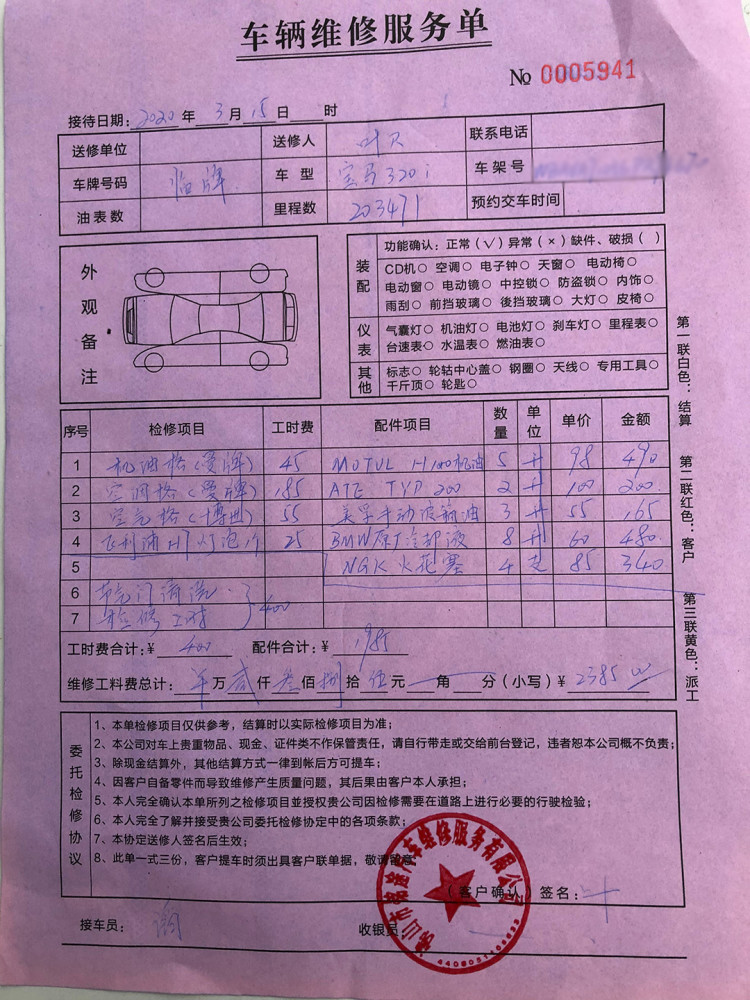 车辆维修服务单
№ 0005941
接待日期: 2020 年 3 月 15 日 时
送修单位 送修人 叶R 联系电话
车牌号码 临牌 车型 宝马320i 车架号
油表数 里程数 203471 预约交车时间
外观备注
装配
功能确认: 正常(√)异常(×)缺件、破损( )
CD机○ 空调○ 电子钟○ 天窗○ 电动椅○
电动窗○ 电动镜○ 中控锁○ 防盗锁○ 内饰○
雨刮○ 前挡玻璃○ 後挡玻璃○ 大灯○ 皮椅○
仪表
气囊灯○ 机油灯○ 电池灯○ 刹车灯○ 里程表○
台速表○ 水温表○ 燃油表○
其他
标志○ 轮轱中心盖○ 钢圈○ 天线○ 专用工具○
千斤顶○ 轮匙○
序号 检修项目 工时费 配件项目 数量 单位 单价 金额
1 机油格(曼牌) 45 MOTUL H100机油 5 升 98 490
2 空调格(曼牌) 185 ATE TYP 200 2 升 100 200
3 空气格(博世) 55 美孚手动波箱油 3 升 55 165
4 飞利浦H7灯泡 25 BMW原厂冷却液 8 升 60 480
5 NGK火花塞 4 支 85 340
6 节气门清洗 } 400
7 检修工时
工时费合计:¥ 400 配件合计:¥ 1985
维修工料费总计: 万 贰 仟 叁 佰 捌 拾 伍 元 角 分(小写)¥ 2385
第一联白色:结算 第二联红色:客户 第三联黄色:派工
委托检修协议
1、本单检修项目仅供参考,结算时以实际检修项目为准;
2、本公司对车上贵重物品、现金、证件类不作保管责任,请自行带走或交给前台登记,违者恕本公司概不负责;
3、除现金结算外,其他结算方式一律到帐后方可提车;
4、因客户自备零件而导致维修产生质量问题,其后果由客户本人承担;
5、本人完全确认本单所列之检修项目並授权贵公司因检修需要在道路上进行必要的行驶检验;
6、本人完全了解并接受贵公司委托检修协定中的各项条款;
7、本协定送修人签名后生效;
8、此单一式三份,客户提车时须出具客户联单据,敬请留意
(客户确认)签名: 叶
接车员: 收银员:
汽车维修服务有限公司